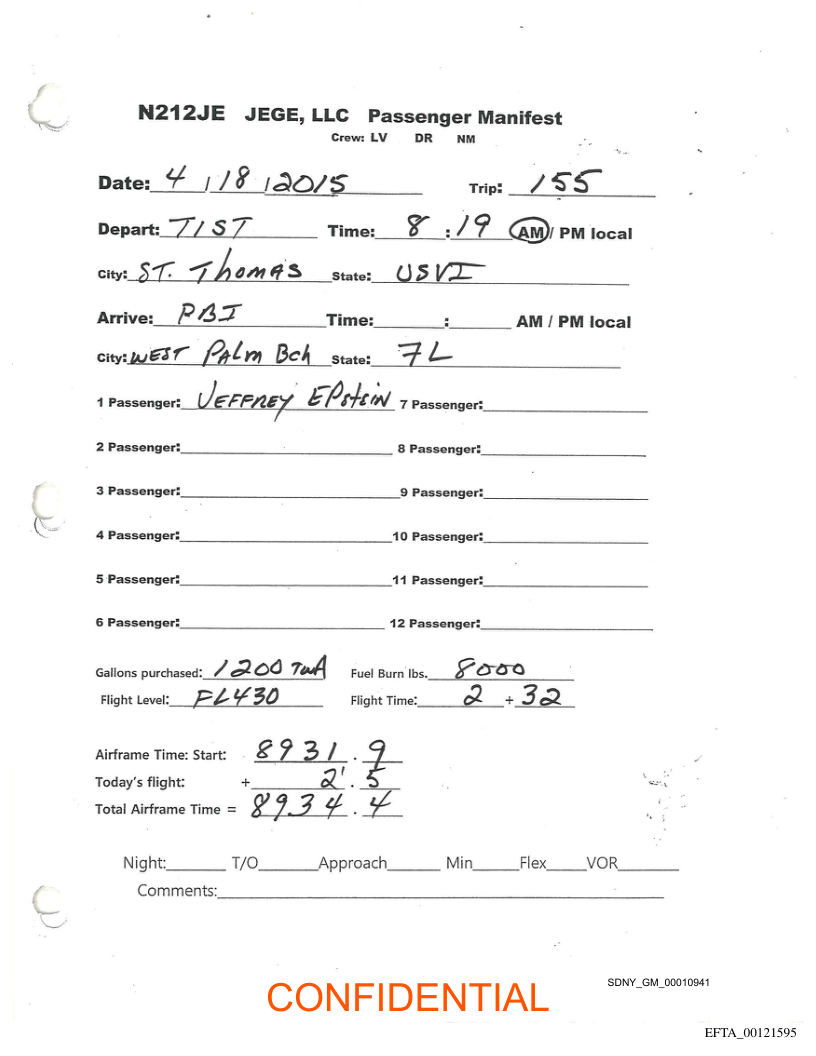 N212JE JEGE, LLC Passenger Manifest
Crew: LV DR NM
Date: 4 / 18 / 2015 Trip: 155
Depart: TIST Time: 8 : 19 AM / PM local
City: ST. Thomas State: USVI
Arrive: PBI Time: : AM / PM local
City: WEST PALm Bch State: FL
1 Passenger: JEFFREY EPstein 7 Passenger:
2 Passenger: 8 Passenger:
3 Passenger: 9 Passenger:
4 Passenger: 10 Passenger:
5 Passenger: 11 Passenger:
6 Passenger: 12 Passenger:
Gallons purchased: 1200 TWA Fuel Burn lbs. 8000
Flight Level: FL430 Flight Time: 2 + 32
Airframe Time: Start: 8931 . 9
Today's flight: + 2 . 5
Total Airframe Time = 8934 . 4
Night: T/O Approach Min Flex VOR
Comments:
SDNY_GM_00010941
CONFIDENTIAL
EFTA_00121595